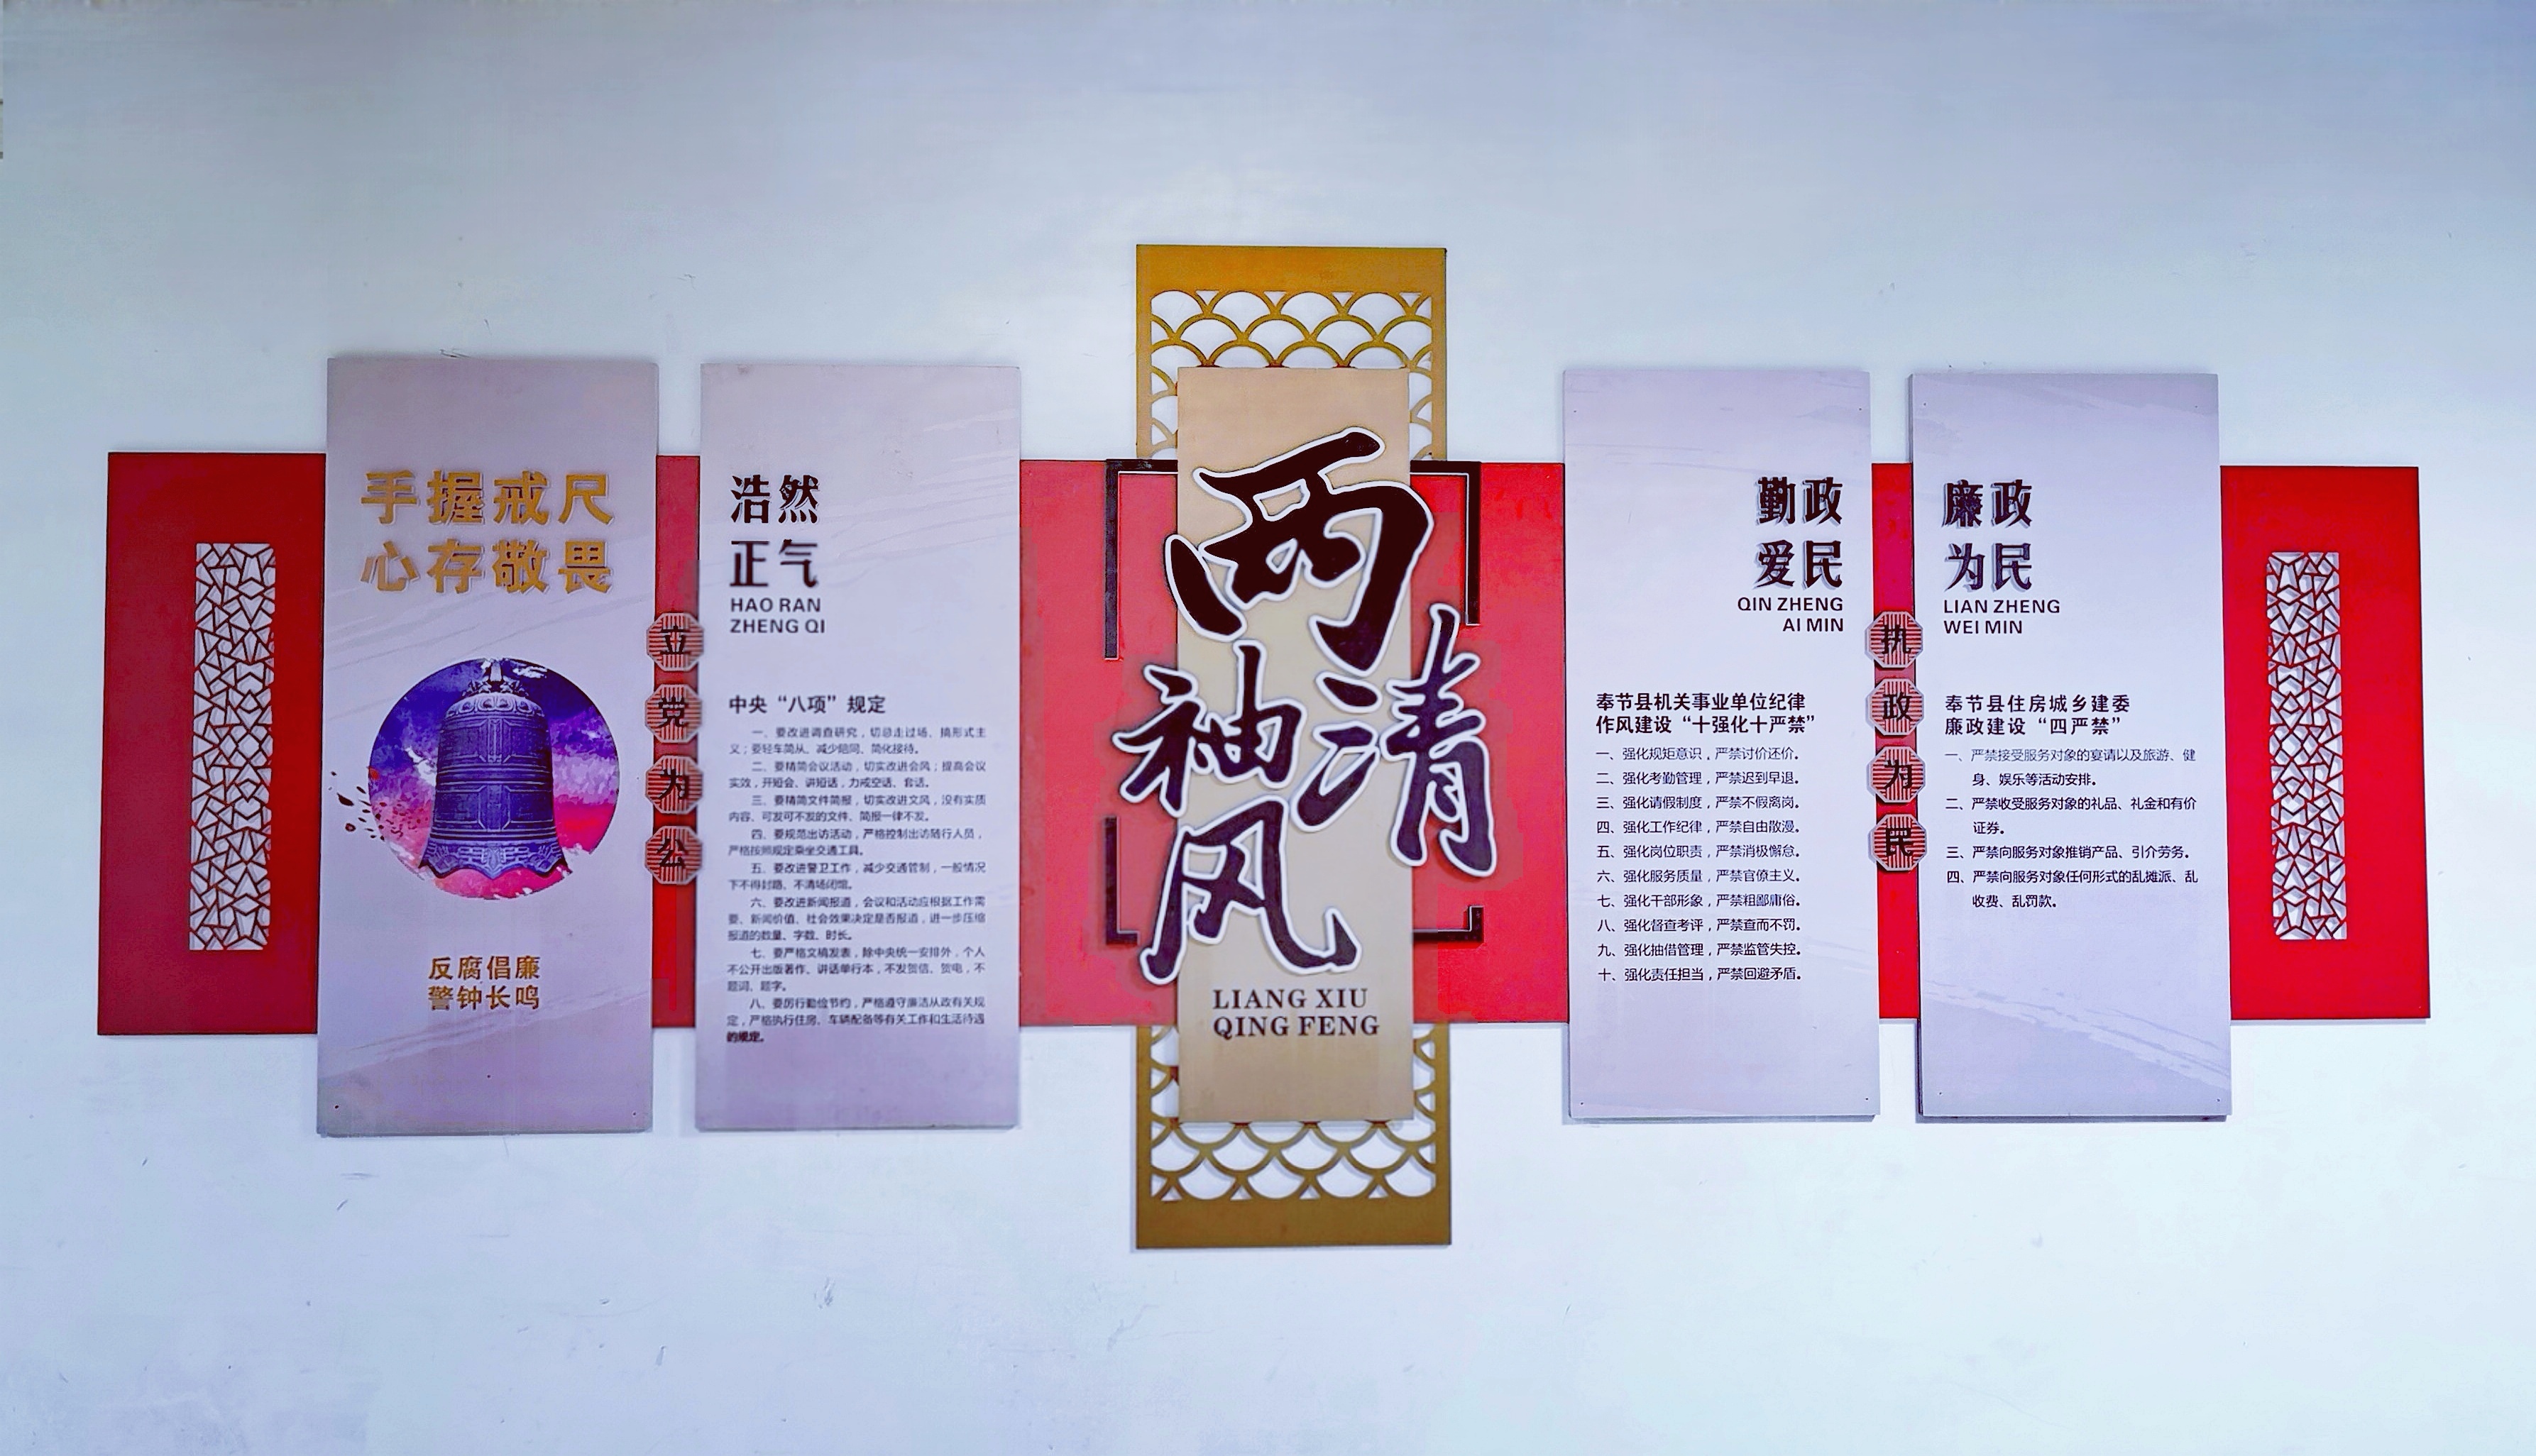 手握戒尺
心存敬畏
反腐倡廉
警钟长鸣
立
党
为
公
浩然
正气
HAO RAN
ZHENG QI
中央“八项”规定
一、要改进调查研究，切忌走过场、搞形式主
义；要轻车简从、减少陪同、简化接待。
二、要精简会议活动，切实改进会风；提高会议
实效，开短会、讲短话，力戒空话、套话。
三、要精简文件简报，切实改进文风，没有实质
内容、可发可不发的文件、简报一律不发。
四、要规范出访活动，严格控制出访随行人员，
严格按照规定乘坐交通工具。
五、要改进警卫工作，减少交通管制，一般情况
下不得封路、不清场闭馆。
六、要改进新闻报道，会议和活动应根据工作需
要、新闻价值、社会效果决定是否报道，进一步压缩
报道的数量、字数、时长。
七、要严格文稿发表，除中央统一安排外，个人
不公开出版著作、讲话单行本，不发贺信、贺电，不
题词、题字。
八、要厉行勤俭节约，严格遵守廉洁从政有关规
定，严格执行住房、车辆配备等有关工作和生活待遇
的规定。
两
袖
清
风
LIANG XIU
QING FENG
勤政
爱民
QIN ZHENG
AI MIN
奉节县机关事业单位纪律
作风建设“十强化十严禁”
一、强化规矩意识，严禁讨价还价。
二、强化考勤管理，严禁迟到早退。
三、强化请假制度，严禁不假离岗。
四、强化工作纪律，严禁自由散漫。
五、强化岗位职责，严禁消极懈怠。
六、强化服务质量，严禁官僚主义。
七、强化干部形象，严禁粗鄙庸俗。
八、强化督查考评，严禁查而不罚。
九、强化抽借管理，严禁监管失控。
十、强化责任担当，严禁回避矛盾。
执
政
为
民
廉政
为民
LIAN ZHENG
WEI MIN
奉节县住房城乡建委
廉政建设“四严禁”
一、严禁接受服务对象的宴请以及旅游、健
身、娱乐等活动安排。
二、严禁收受服务对象的礼品、礼金和有价
证券。
三、严禁向服务对象推销产品、引介劳务。
四、严禁向服务对象任何形式的乱摊派、乱
收费、乱罚款。